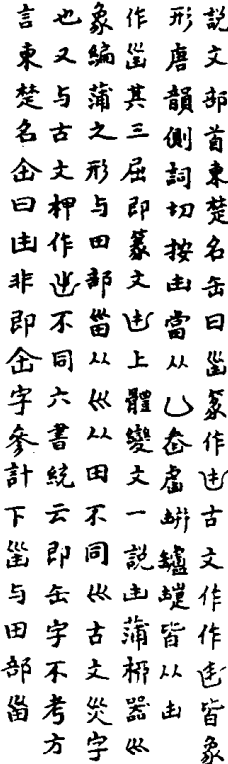 說文部首東楚名缶曰甾篆作𠙹古文作作皆象
形唐韻側詞切按𠙹當从乚皆从𠙹
作甾其三屈即篆文𠙹上體變文一說𠙹蒲桺器巛
象編蒲之形与田部甾从巛从田不同巛古文災字
也又与古文柙作不同六書統云即缶字不考方
言東楚名缶曰𠙹非即缶字參計下甾与田部甾